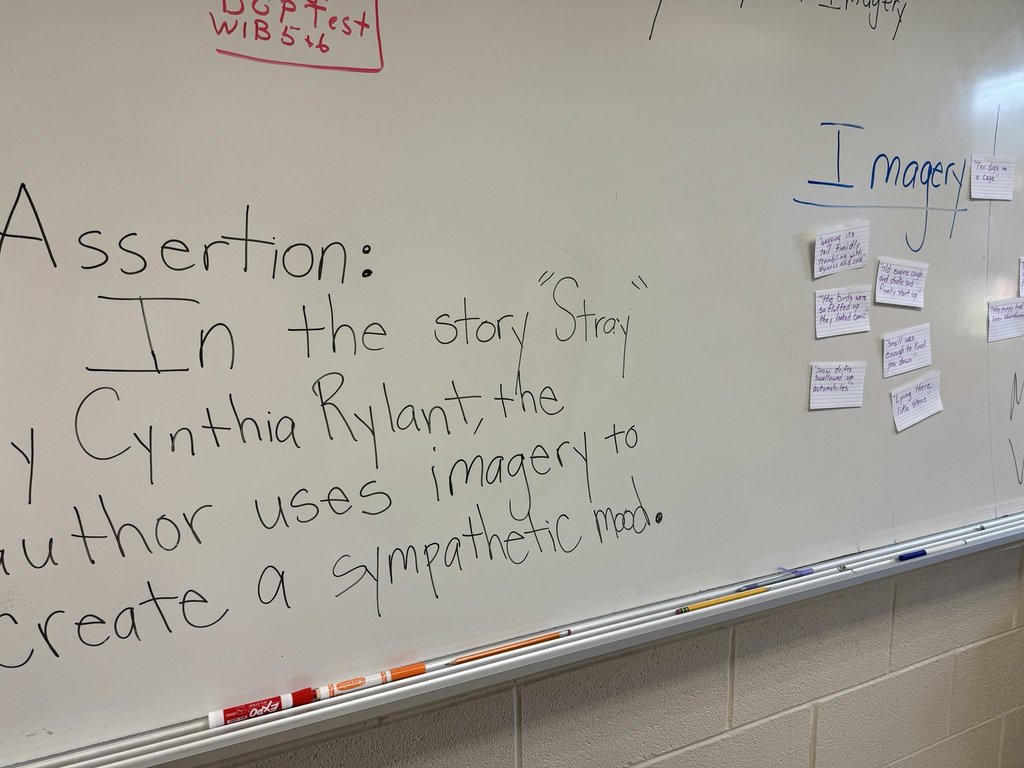 DGP Test
WIB 5+6
Imagery
Assertion:
In the story "Stray"
y Cynthia Rylant, the
author uses imagery to
create a sympathetic mood.
Imagery
"wagging its
tail timidly
trembling with
shyness and cold"
"old engine cough
and choke and
finally start up
"the birds were
so fluffed up
they looked comic"
"Small was
enough to knock
you down"
"Snow drifts
swallowed up
automobiles"
"Lying there
like stone"
"Ten dogs to
a cage"
"the puppy had
been abandoned
EXPO
Crayola